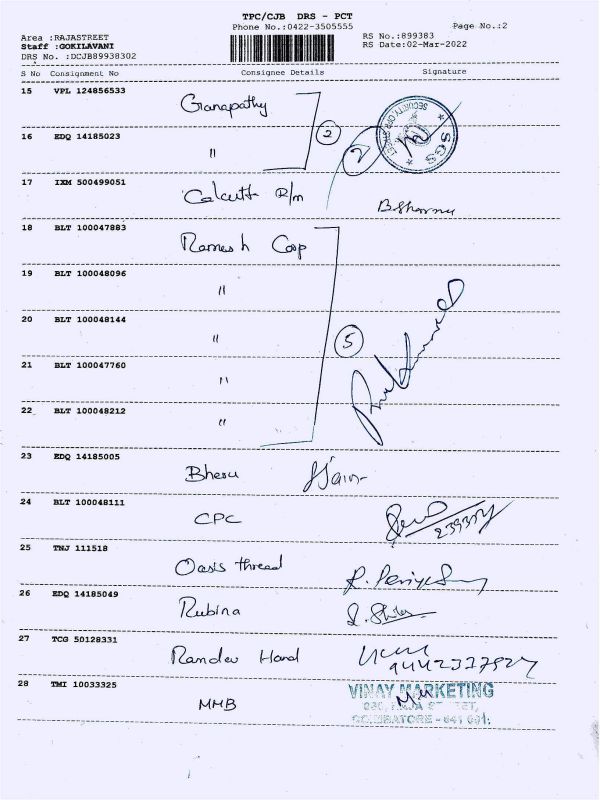 TPC/CJB DRS - PCT
Phone No.:0422-3505555
Page No.:2
Area :RAJASTREET
RS No.:899383
Staff :GOKILAVANI
RS Date:02-Mar-2022
DRS No. :DCJB89938302
S No Consignment No Consignee Details Signature
15 VPL 124856533
Ganapathy
2
2
SGS
16 EDQ 14185023
"
17 IXM 500499051
Calcutta
18 BLT 100047883
Ramesh Corp
19 BLT 100048096
"
20 BLT 100048144
"
5
21 BLT 100047760
"
22 BLT 100048212
"
23 EDQ 14185005
Bheru
24 BLT 100048111
CPC
25 TNJ 111518
Oasis thread
26 EDQ 14185049
Rubina
27 TCG 50128331
Ramdev Hand
28 TMI 10033325
MMB
VINAY MARKETING
COIMBATORE - 641 001.